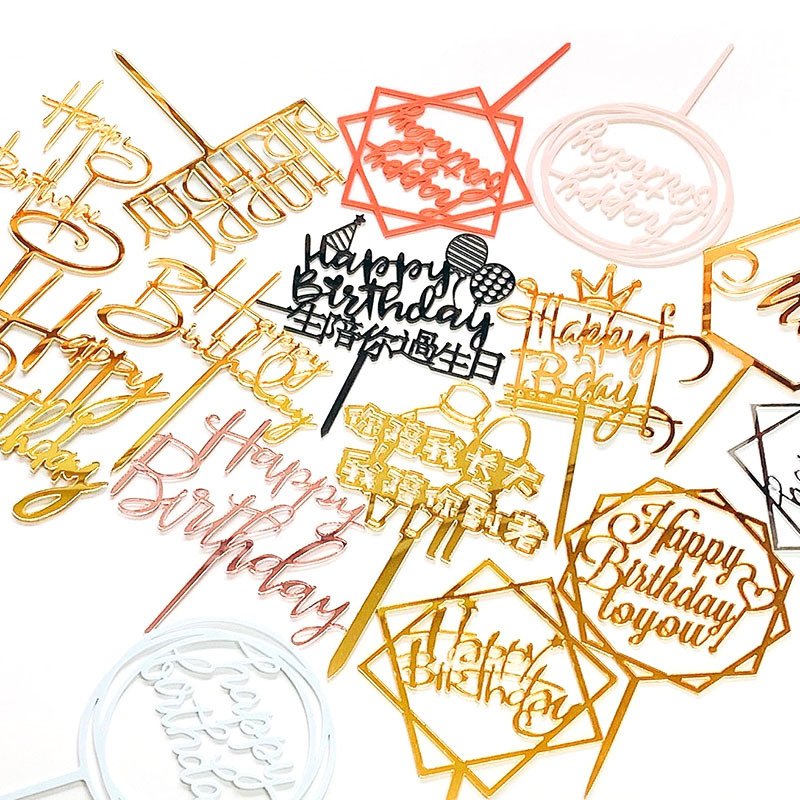 Happy
Birthday
HAPPY
BIRTHDAY
happy
birthday
happy
birthday
Happy
Birthday
一生陪你過生日
Happy
Birthday
Happy
B·day
Happy
Birthday
Happy
Birthday
你陪我长大
我陪你到老
Happy
Birthday
to you
Happy
Birthday
happy
birthda